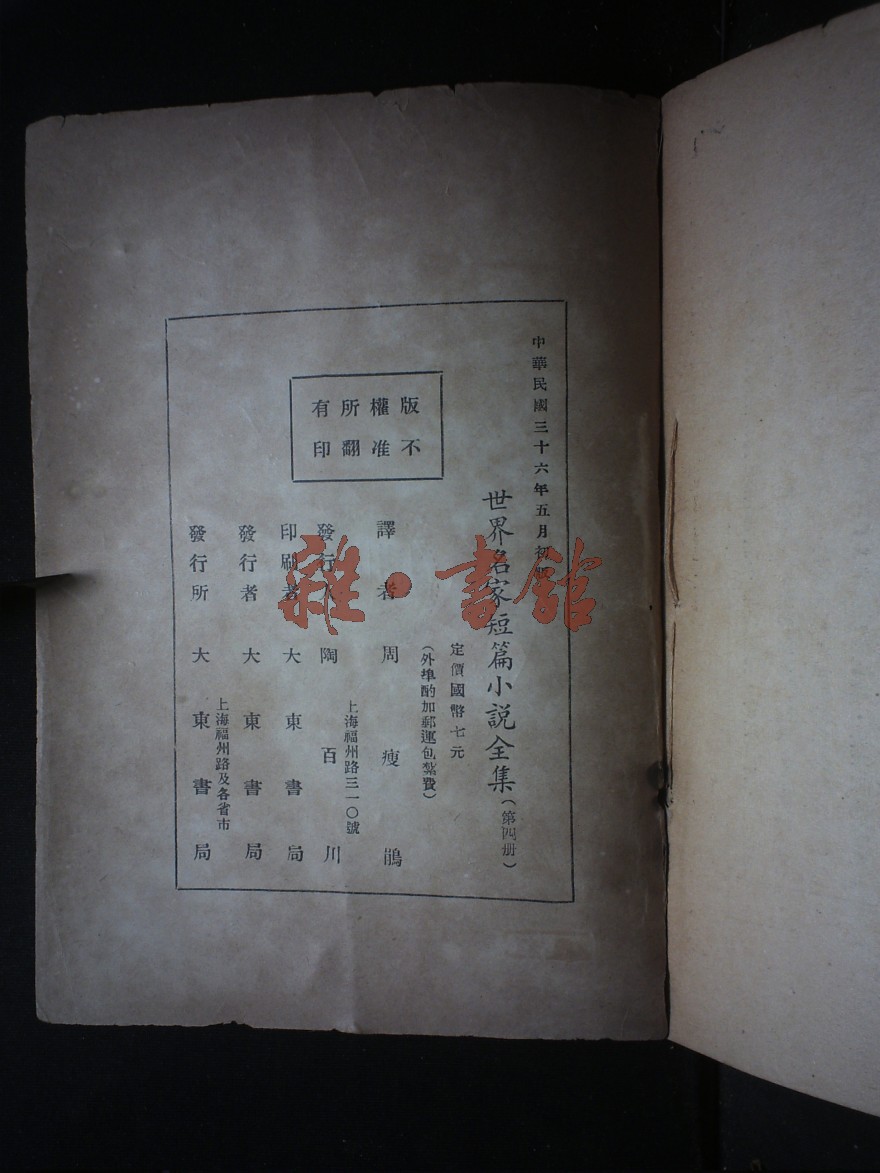 中華民國三十六年五月初
世界名家短篇小說全集(第四册)
定價國幣七元
(外埠酌加郵運包紮費)
版權所有
不准翻印
譯者 周瘦鵑
上海福州路三一〇號
發行人 陶百川
印刷者 大東書局
發行者 大東書局
上海福州路及各省市
發行所 大東書局
雜·書館